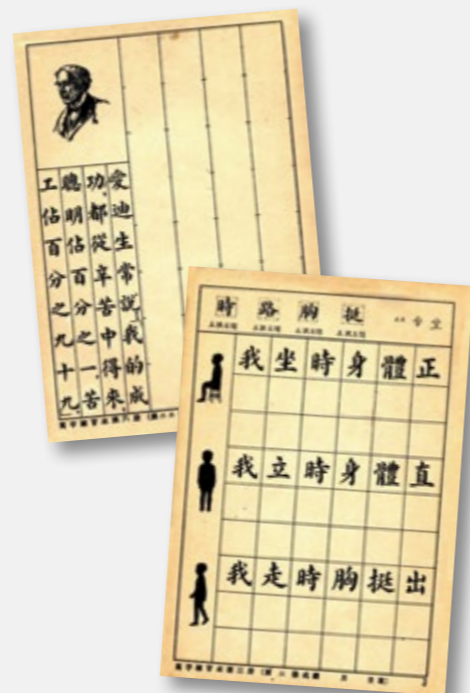 愛迪生常說,我的成
功,都從辛苦中得來,
聰明佔百分之一,苦
工佔百分之九十九
時 路 胸 挺
我坐時身體正
我立時身體直
我走時胸挺出